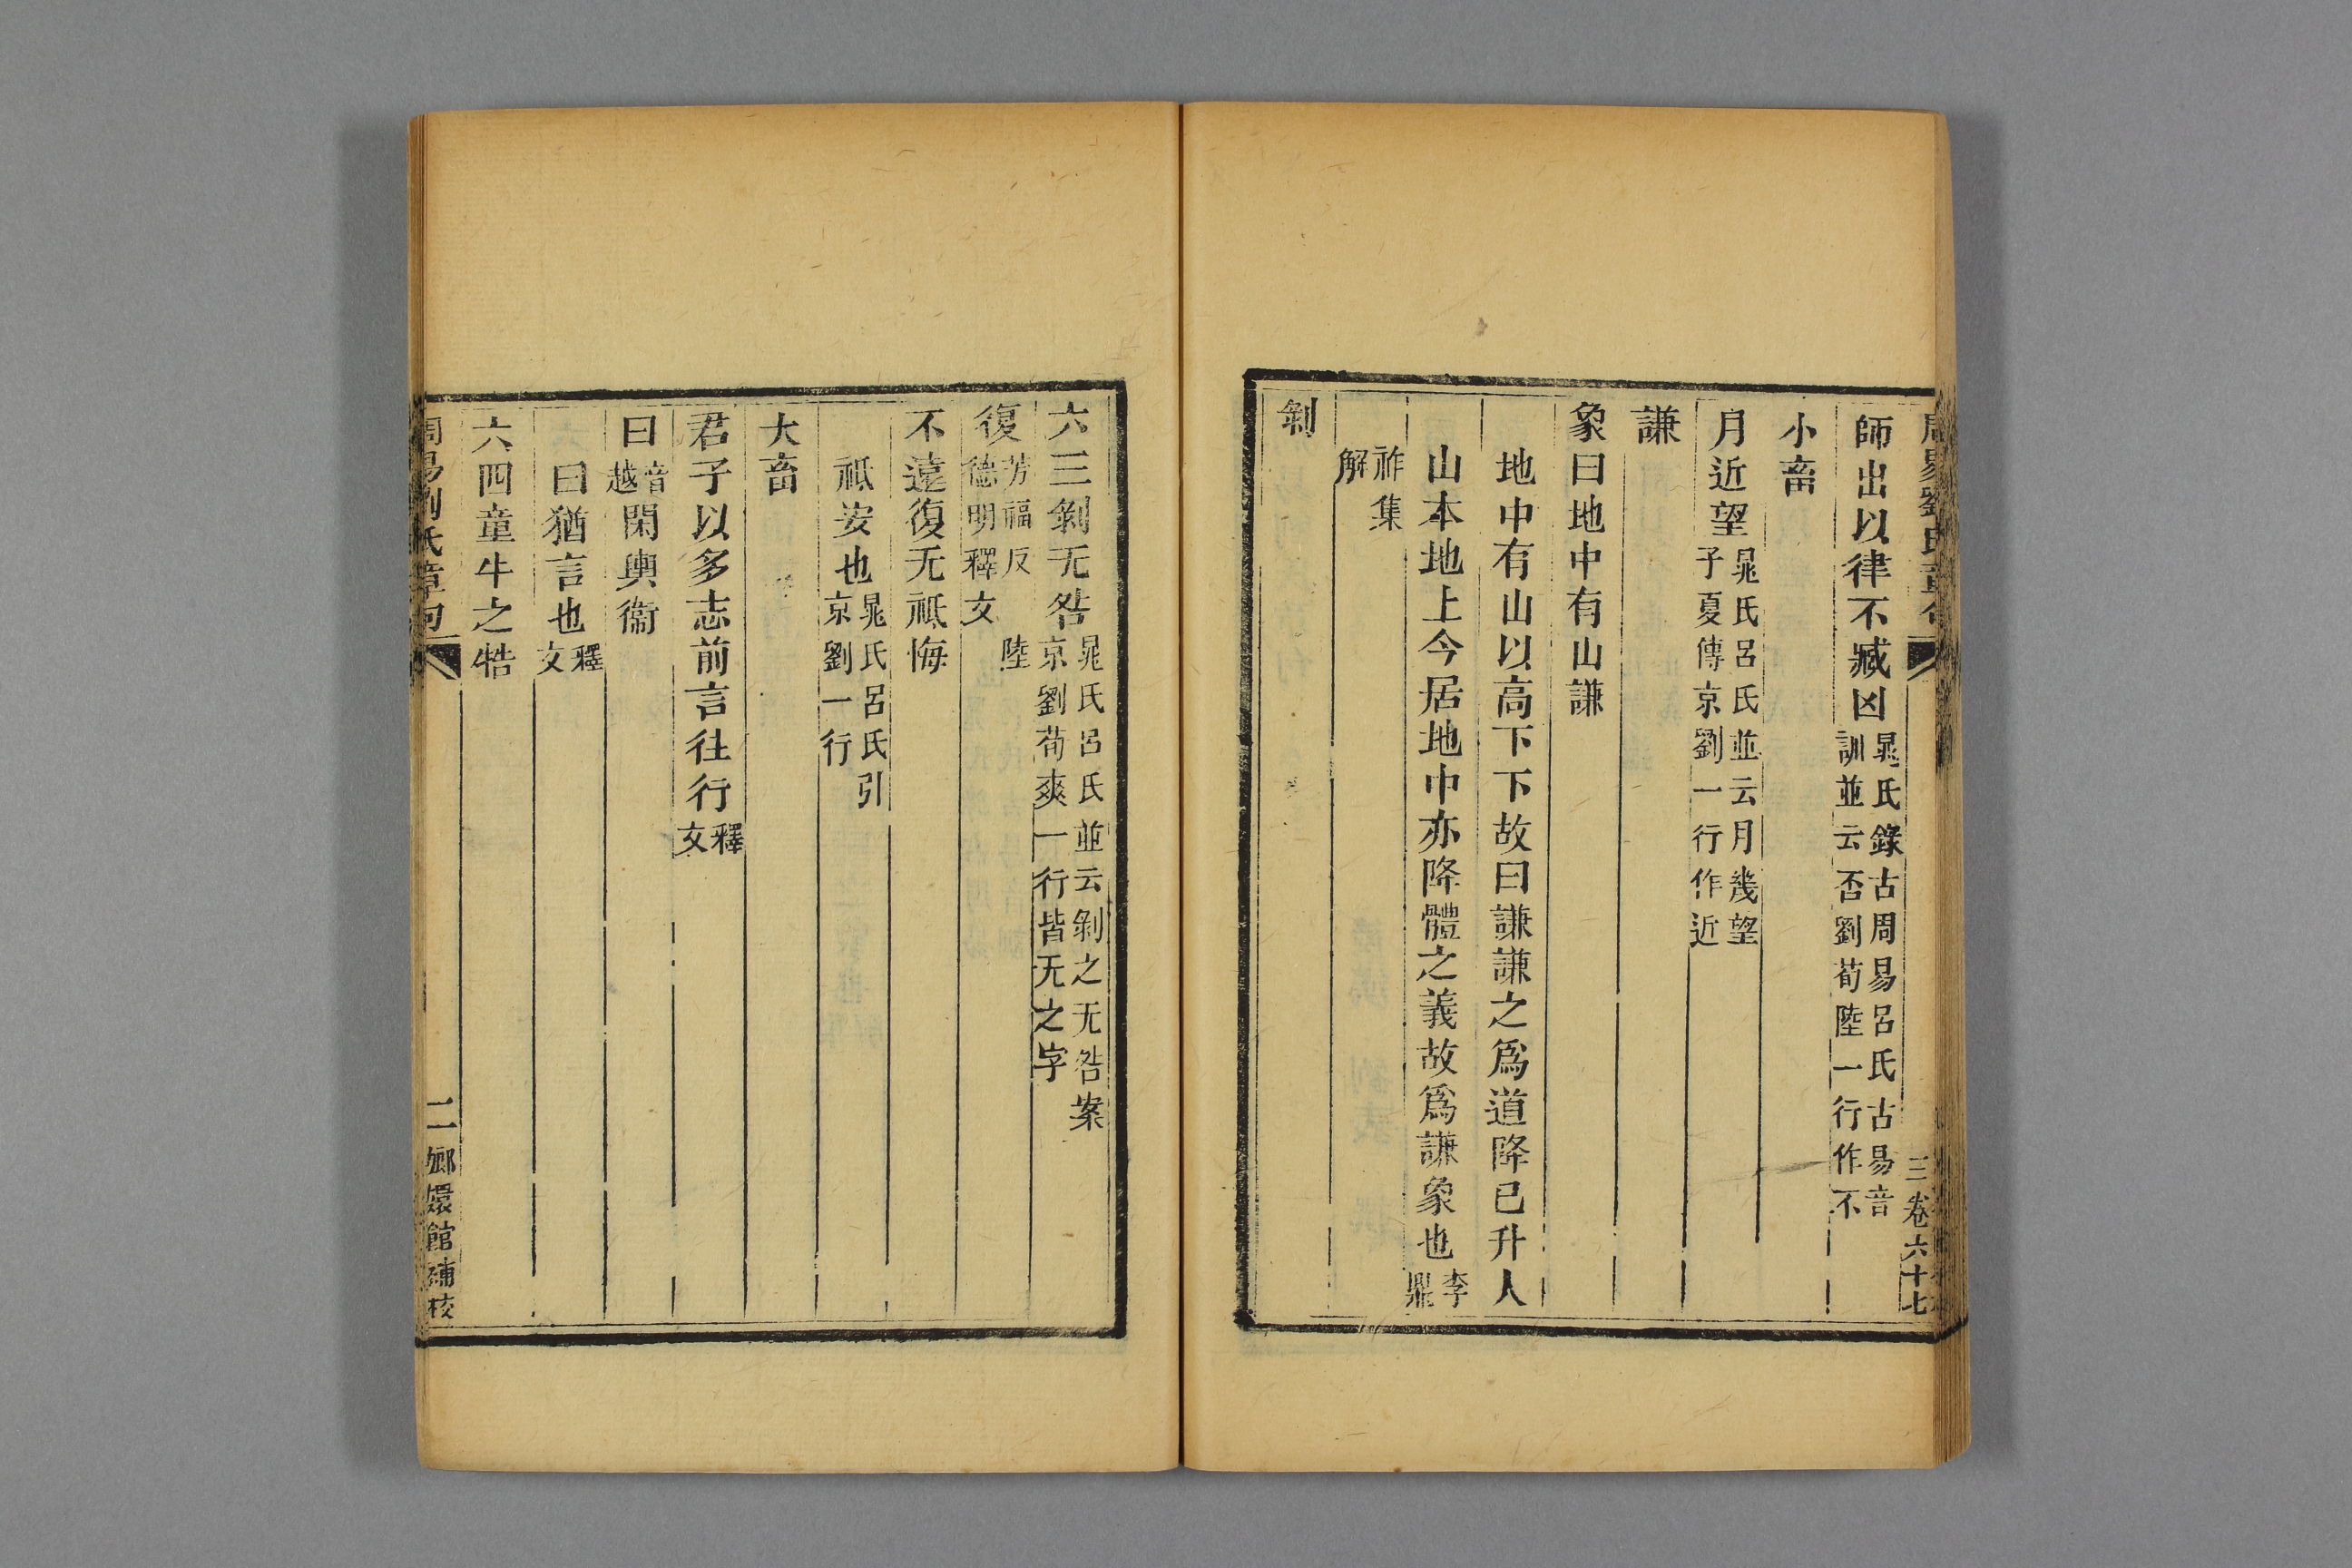 周易劉氏章句
三 卷六十七
師出以律不臧凶晁氏錄古周易呂氏古易音
訓並云否劉荀陸一行作不
小畜
月近望晁氏呂氏並云月幾望
子夏傳京劉一行作近
謙
象曰地中有山謙
地中有山以高下下故曰謙謙之爲道降已升人
山本地上今居地中亦降體之義故爲謙象也李
鼎
祚集
解
剝
六三剝无咎晁氏呂氏並云剝之无咎案
京劉荀爽一行皆无之字
復芳福反 陸
德明釋文
不遠復无祗悔
祗安也晁氏呂氏引
京劉一行
大畜
君子以多志前言往行釋
文
曰音
越閑輿衞
曰猶言也釋
文
六四童牛之牿
周易劉氏章句
二 嫏嬛館補校